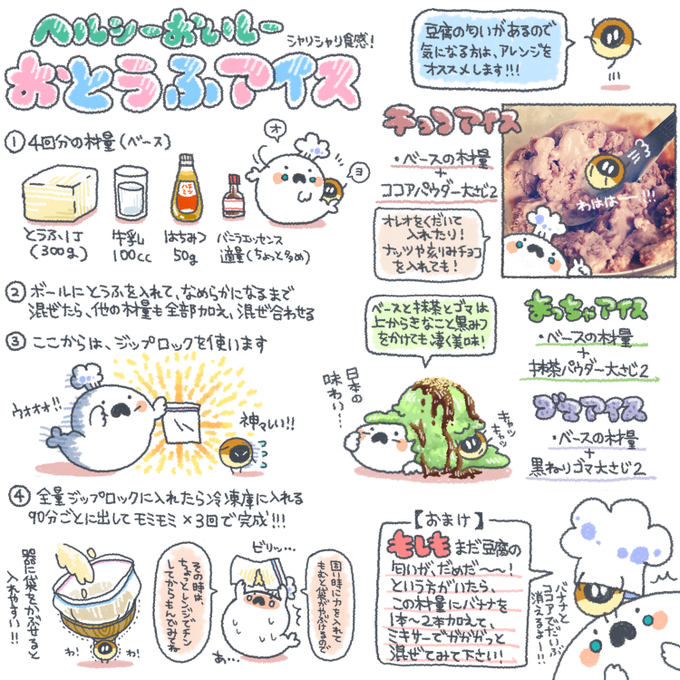 ヘルシーおいしー
シャリシャリ食感!
おとうふアイス
豆腐の匂いがあるので
気になる方は、アレンジを
オススメします!!!
① 4回分の材量(ベース)
オ
ヨ
とうふ1丁
(300g)
牛乳
100cc
ハチミツ
はちみつ
50g
バニラエッセンス
適量(ちょっと多め)
② ボールにとうふを入れて、なめらかになるまで
混ぜたら、他の材量も全部加え、混ぜ合わせる
③ ここからは、ジップロックを使います
ウオオオ!!
神々しい!!
④ 全量ジップロックに入れたら冷凍庫に入れる
90分ごとに出してモミモミ×3回で完成!!!
器に袋をかぶせると
入れやすい!!
わ!
わ!
その時は、
ちょっとレンジでチン
してからもんでみてね
ビリッ…
あ…
固い時に力を入れて
もむと袋がやぶけるので
チョコアイス
・ベースの材量
+
ココアパウダー大さじ2
オレオをくだいて
入れたり!
ナッツや刻みチョコ
を入れても!
わははー!!!
ベースと抹茶とゴマは
上からきなこと黒みつ
をかけても凄く美味!
日本の
味わい…
キャッ
キャッ
まっちゃアイス
・ベースの材量
+
抹茶パウダー大さじ2
ゴマアイス
・ベースの材量
+
黒ねりゴマ大さじ2
【おまけ】
もしもまだ豆腐の
匂いが、だめだ~~!
という方がいたら、
この材量にバナナを
1本~2本加えて、
ミキサーでガガガッと
混ぜてみて下さい!
バナナと
ココアでだいぶ
消えるよー!!